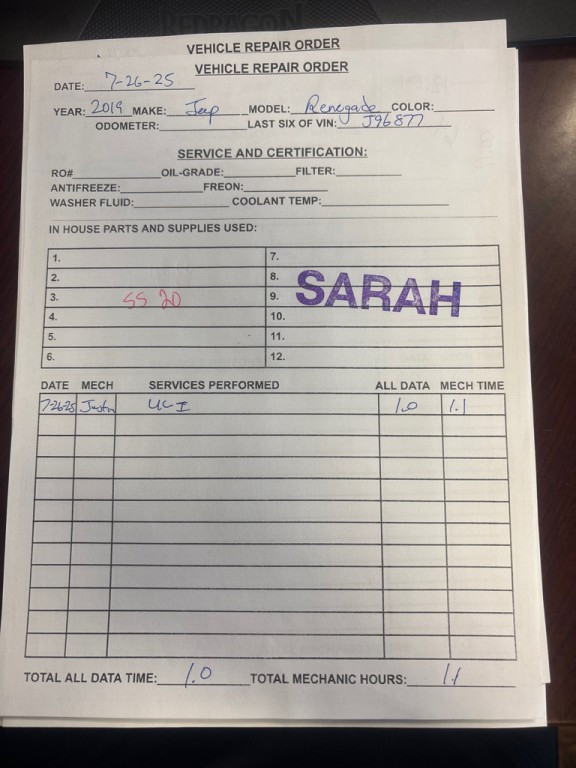 REDRAGON
VEHICLE REPAIR ORDER
VEHICLE REPAIR ORDER
DATE: 7-26-25
YEAR: 2019 MAKE: Jeep MODEL: Renegade COLOR:
ODOMETER: LAST SIX OF VIN: J96877
SERVICE AND CERTIFICATION:
RO# OIL-GRADE: FILTER:
ANTIFREEZE: FREON:
WASHER FLUID: COOLANT TEMP:
IN HOUSE PARTS AND SUPPLIES USED:
1. 7.
2. 8.
3. SS 20 9. SARAH
4. 10.
5. 11.
6. 12.
DATE MECH SERVICES PERFORMED ALL DATA MECH TIME
7-26-25 Justin UCI 1.0 1.1
TOTAL ALL DATA TIME: 1.0 TOTAL MECHANIC HOURS: 1.1